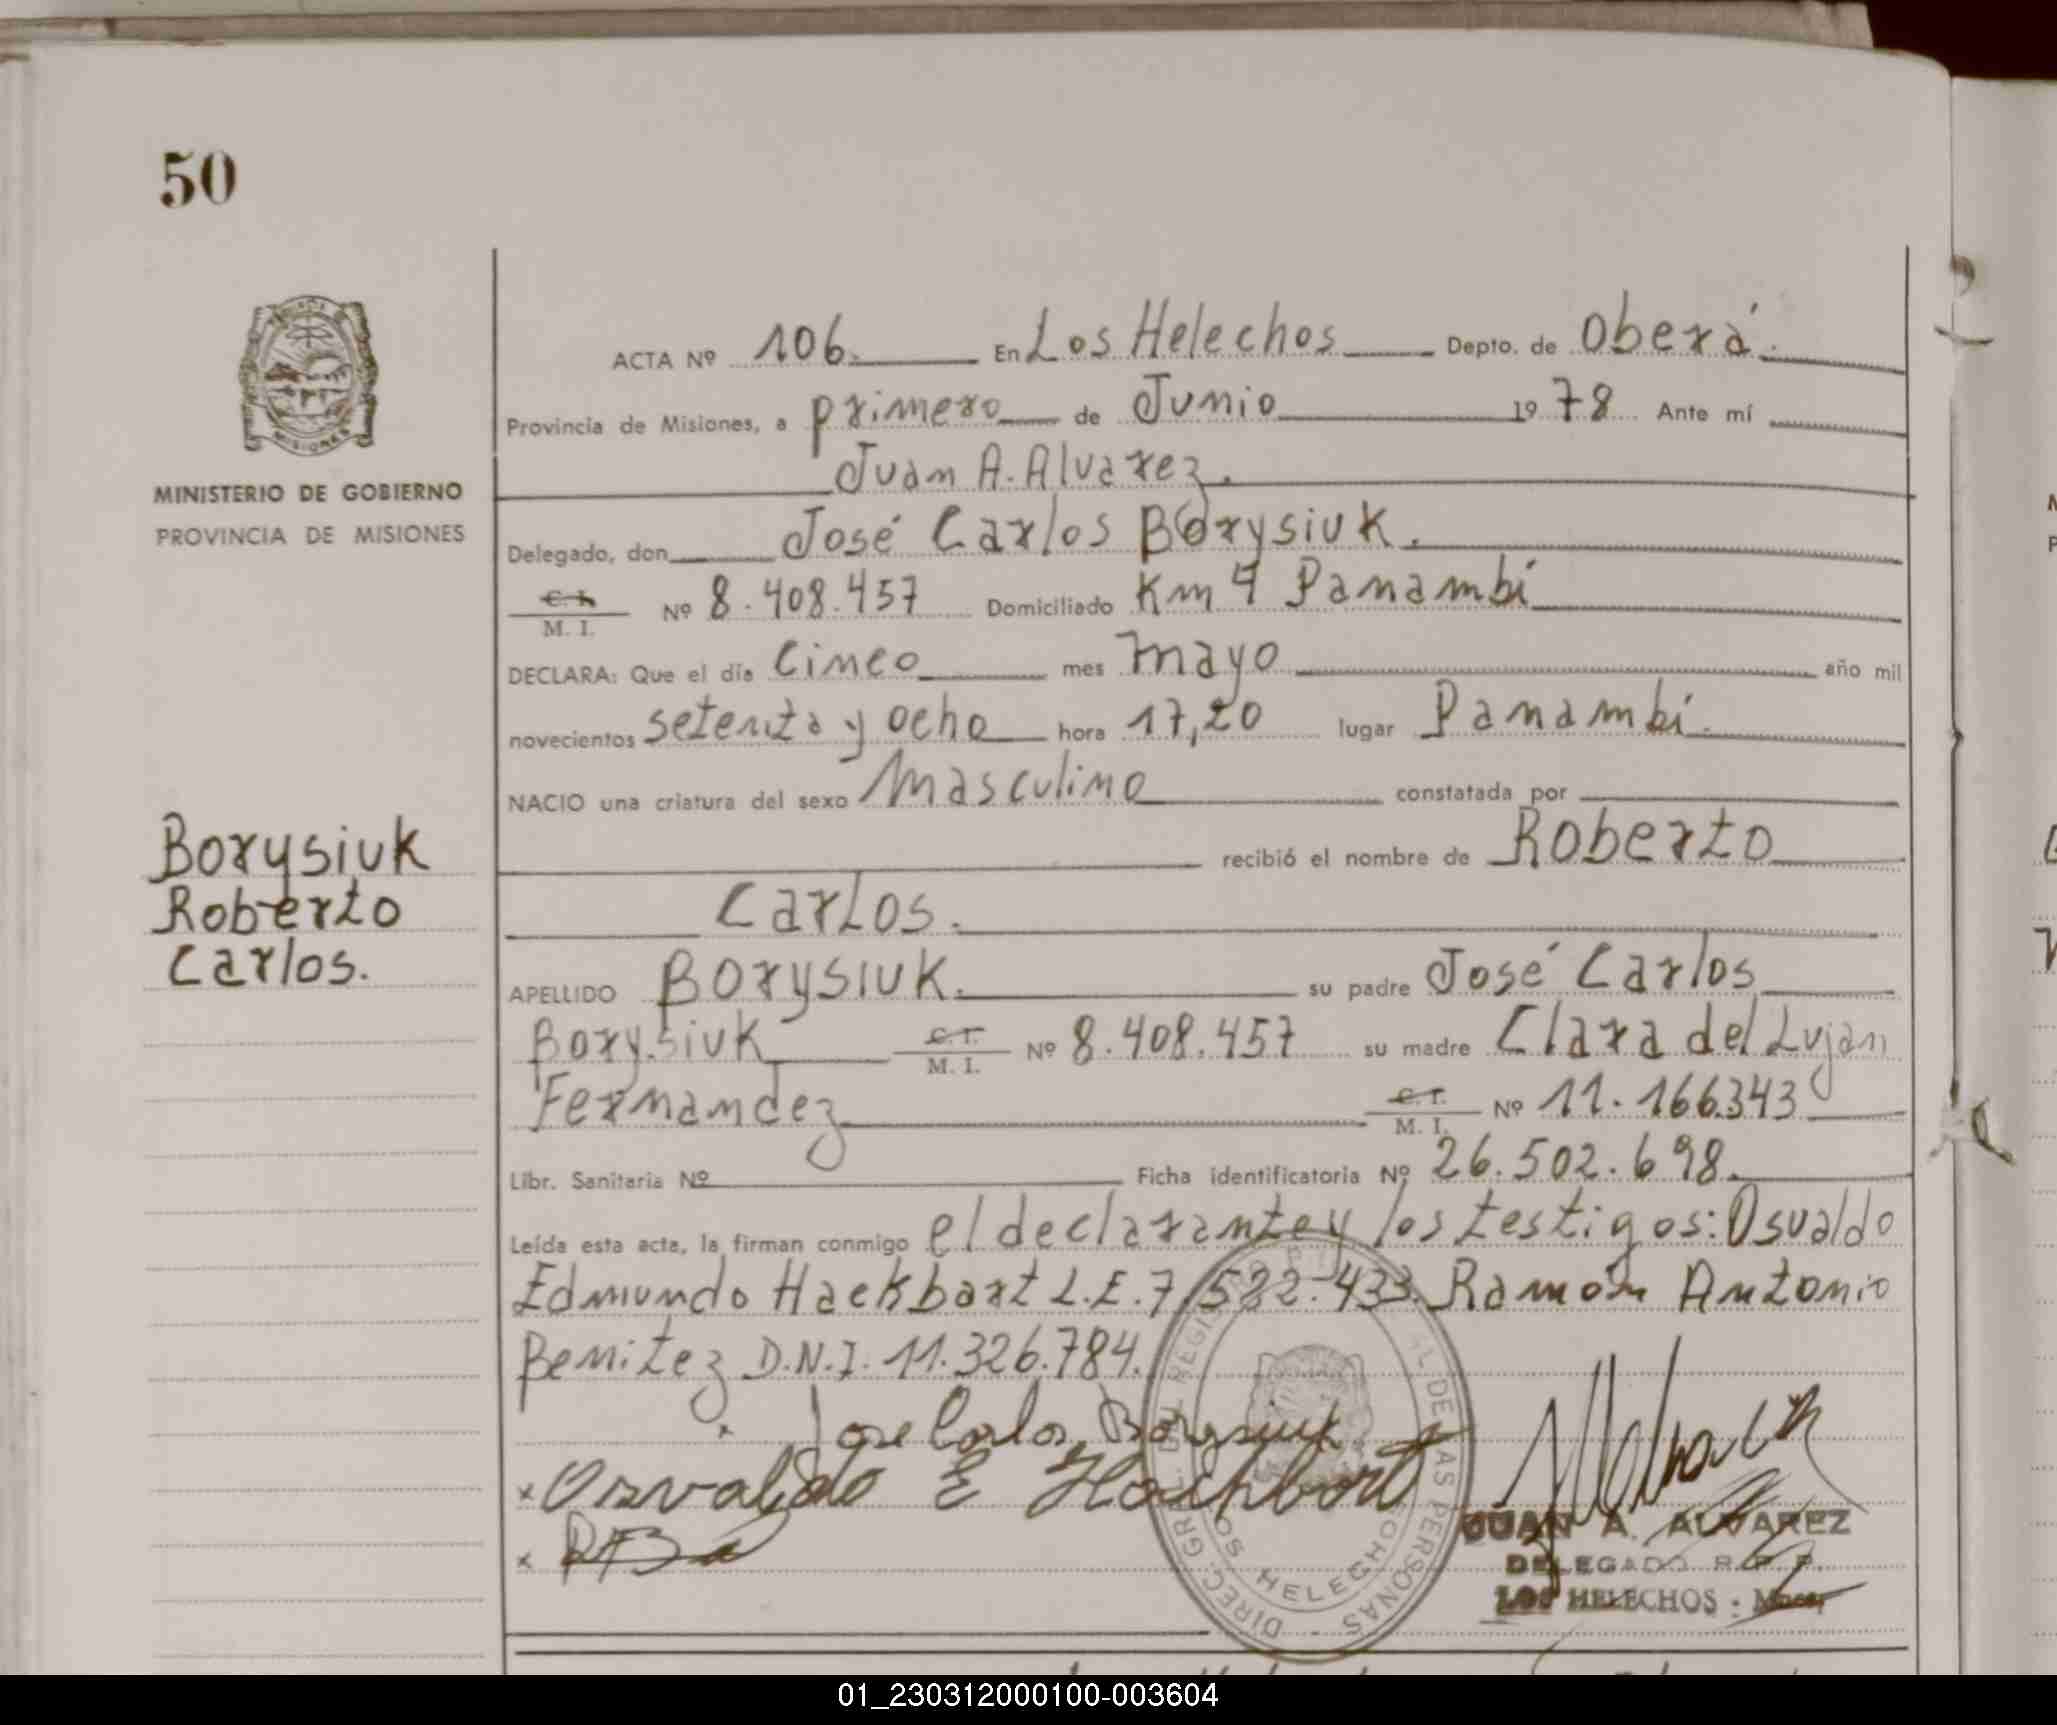 50
ACTA Nº 106. En Los Helechos Depto. de Oberá.
Provincia de Misiones, a primero de Junio 1978 Ante mí
Juan A. Alvarez.
MINISTERIO DE GOBIERNO
PROVINCIA DE MISIONES
Delegado, don José Carlos Borysiuk.
C. I. M. I. Nº 8.408.457 Domiciliado Km 4 Panambí
DECLARA: Que el día Cinco mes mayo año mil
novecientos setenta y ocho hora 17,20 lugar Panambí.
NACIO una criatura del sexo Masculino constatada por
recibió el nombre de Roberto
Carlos.
Borysiuk
Roberto
Carlos.
APELLIDO Borysiuk. su padre José Carlos
Borysiuk C. I. M. I. Nº 8.408.457 su madre Clara del Lujan
Fernandez C. I. M. I. Nº 11.166.343
Libr. Sanitaria Nº Ficha identificatoria Nº 26.502.698.
Leída esta acta, la firman conmigo el declarante y los testigos: Osvaldo
Edmundo Hackbart L.E. 7.522.433. Ramón Antonio
Benitez D.N.I. 11.326.784.
x Jose Carlos Borysiuk
x Osvaldo E Hackbart
x
DIREC. GRAL. DEL REGISTRO PROVINCIAL DE LAS PERSONAS
LOS HELECHOS
JUAN A. ALVAREZ
DELEGADO R. P. P.
LOS HELECHOS - Mnes.
01_230312000100-003604